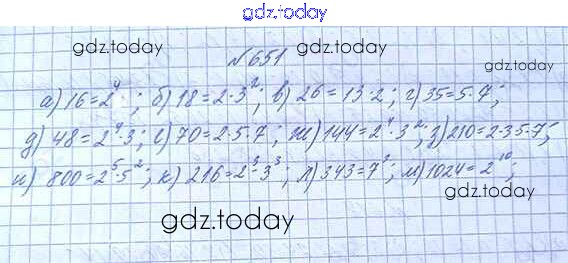 gdz.today
gdz.today №651 gdz.today
gdz.today
а) 16=2⁴; б) 18=2·3²; в) 26=13·2; г) 35=5·7;
д) 48=2⁴·3; е) 70=2·5·7; ж) 144=2⁴·3²; з) 210=2·3·5·7;
и) 800=2⁵·5²; к) 216=2³·3³; л) 343=7³; м) 1024=2¹⁰;
gdz.today
gdz.today